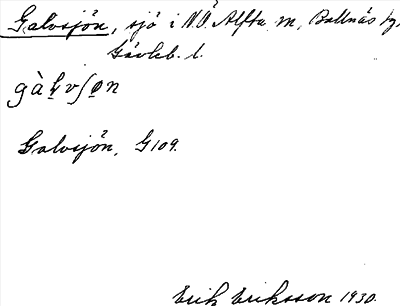 Galvsjön, sjö i N.Ö. Alfta m, Bollnäs tg,
Gävleb. l.
gàlvʃøn
Galvsjön, G109.
Erik Eriksson 1930.